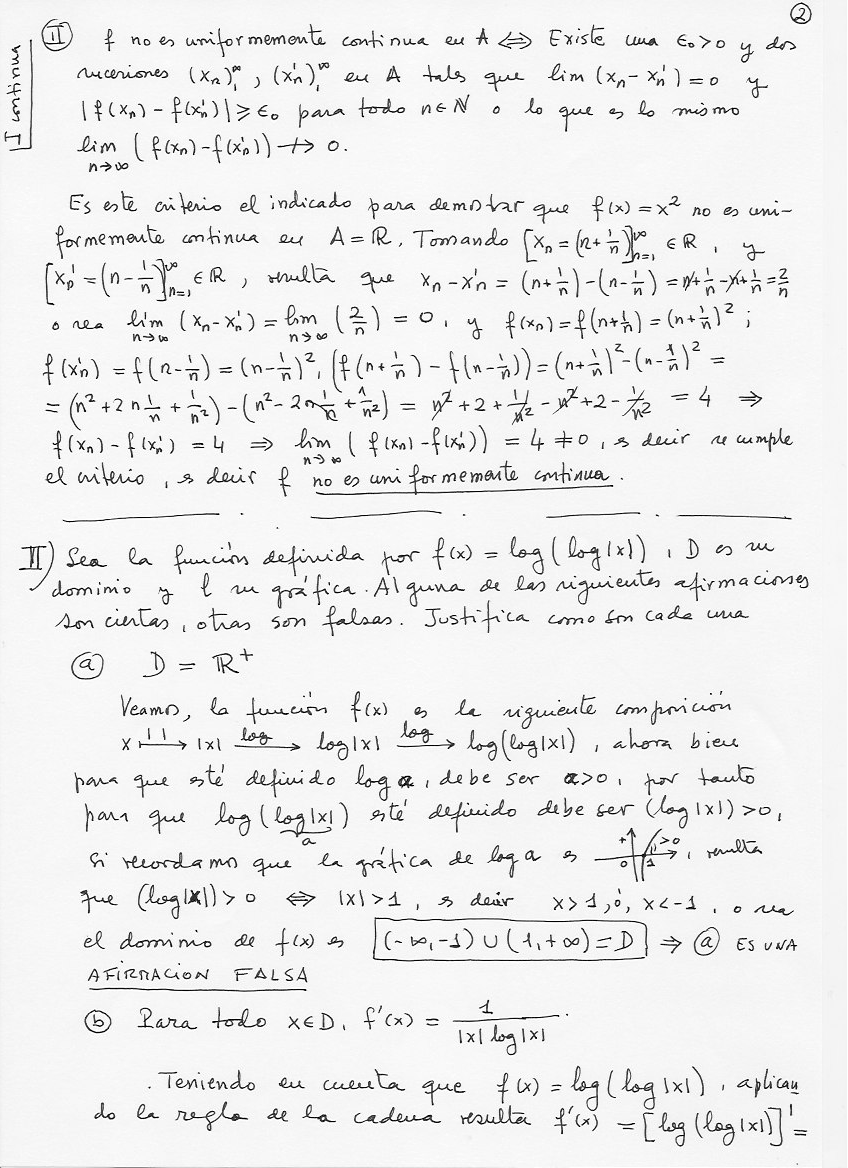 ②
Continua
Ⅱ f no es uniformemente continua en A ⇔ Existe una ϵ₀>0 y dos
sucesiones (xₙ)₁^∞, (x'ₙ)₁^∞ en A tales que lim (xₙ - x'ₙ) = 0 y
|f(xₙ) - f(x'ₙ)| ⩾ ϵ₀ para todo n∈ℕ o lo que es lo mismo
lim_{n→∞} (f(xₙ) - f(x'ₙ)) ↛ 0.
Es este criterio el indicado para demostrar que f(x) = x² no es uni-
formemente continua en A = ℝ. Tomando [xₙ = (n+1/n)]_{n=1}^∞ ∈ ℝ, y
[x'ₙ = (n - 1/n)]_{n=1}^∞ ∈ ℝ, resulta que xₙ - x'ₙ = (n+1/n) - (n-1/n) = n+1/n - n+1/n = 2/n
o sea lim_{n→∞} (xₙ - x'ₙ) = lim_{n→∞} (2/n) = 0, y f(xₙ) = f(n+1/n) = (n+1/n)²;
f(x'ₙ) = f(n-1/n) = (n-1/n)², (f(n+1/n) - f(n-1/n)) = (n+1/n)² - (n-1/n)² =
= (n² + 2n 1/n + 1/n²) - (n² - 2n 1/n + 1/n²) = n² + 2 + 1/n² - n² + 2 - 1/n² = 4 ⇒
f(xₙ) - f(x'ₙ) = 4 ⇒ lim_{n→∞} (f(xₙ) - f(x'ₙ)) = 4 ≠ 0, es decir se cumple
el criterio, es decir f no es uniformemente continua.
Ⅱ) Sea la función definida por f(x) = log(log|x|), D es su
dominio y ℓ su gráfica. Alguna de las siguientes afirmaciones
son ciertas, otras son falsas. Justifica como son cada una
ⓐ D = ℝ⁺
Veamos, la función f(x) es la siguiente composición
x ⟼^{| |} |x| ⟶^{log} log|x| ⟶^{log} log(log|x|), ahora bien
para que esté definido log a, debe ser a>0, por tanto
para que log(log|x|) esté definido debe ser (log|x|) >0,
a
si recordamos que la gráfica de log a es + >0 0 1, resulta
que (log|x|) > 0 ⇔ |x| > 1, es decir x > 1, ó, x < -1, o sea
el dominio de f(x) es (-∞,-1) ∪ (1,+∞) = D ⇒ ⓐ ES UNA
AFIRMACION FALSA
ⓑ Para todo x∈D, f'(x) = 1/(|x| log|x|).
. Teniendo en cuenta que f(x) = log(log|x|), aplican
do la regla de la cadena resulta f'(x) = [log(log|x|)]' =